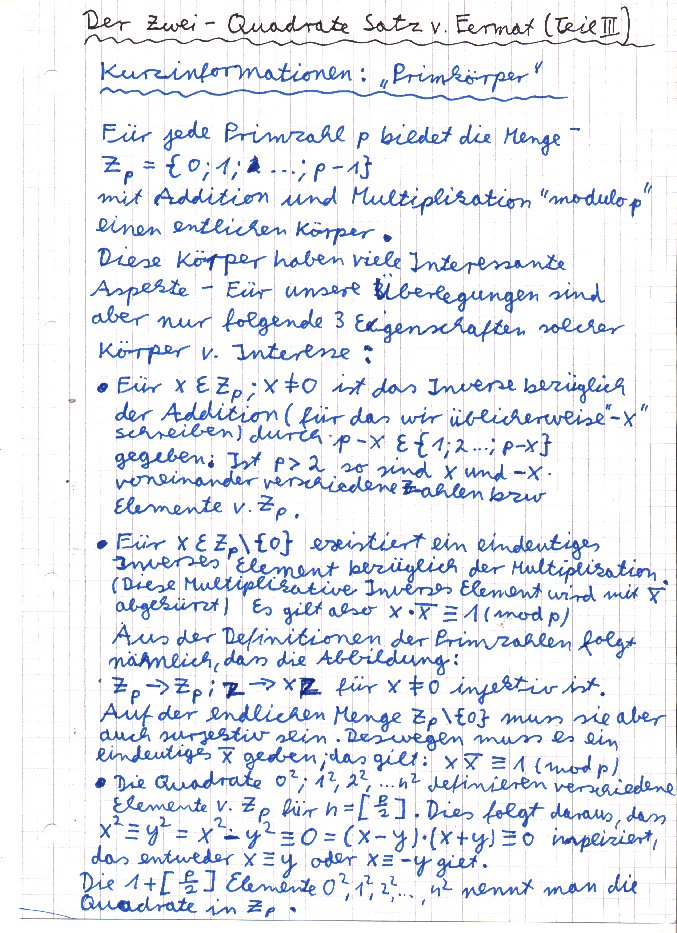 Der Zwei - Quadrate Satz v. Fermat (Teil III)
Kurzinformationen: „Primkörper“
Für jede Primzahl p bildet die Menge -
Z_p = {0; 1; ...; p-1}
mit Addition und Multiplikation "modulo p"
einen entlichen Körper.
Diese Körper haben viele Interessante
Aspekte - Für unsere Überlegungen sind
aber nur folgende 3 Eigenschaften solcher
Körper v. Interesse:
• Für x ε Z_p; x ≠ 0 ist das Inverse bezüglich
der Addition (für das wir üblicherweise "-x"
schreiben) durch p-x ε {1; 2 ...; p-x}
gegeben. Ist p > 2 so sind x und -x
voneinander verschiedene Zahlen bzw
Elemente v. Z_p.
• Für x ε Z_p\{0} existiert ein eindeutiges
Inverses Element bezüglich der Multiplikation.
(Diese Multiplikative Inverses Element wird mit x̄
abgekürzt) Es gilt also x·x̄ ≡ 1 (mod p)
Aus der Definitionen der Primzahlen folgt
nähmlich, dass die Abbildung:
Z_p → Z_p; z → xz für x ≠ 0 injektiv ist.
Auf der endlichen Menge Z_p\{0} muss sie aber
auch surjektiv sein. Deswegen muss es ein
eindeutiges x̄ geben, das gilt: x x̄ ≡ 1 (mod p)
• Die Quadrate 0²; 1², 2², ... n² definieren verschiedene
Elemente v. Z_p für n = [p/2]. Dies folgt daraus, dass
x² ≡ y² = x² - y² ≡ 0 = (x-y)·(x+y) ≡ 0 impliziert,
das entweder x ≡ y oder x ≡ -y gilt.
Die 1 + [p/2] Elemente 0², 1², 2², ..., n² nennt man die
Quadrate in Z_p.